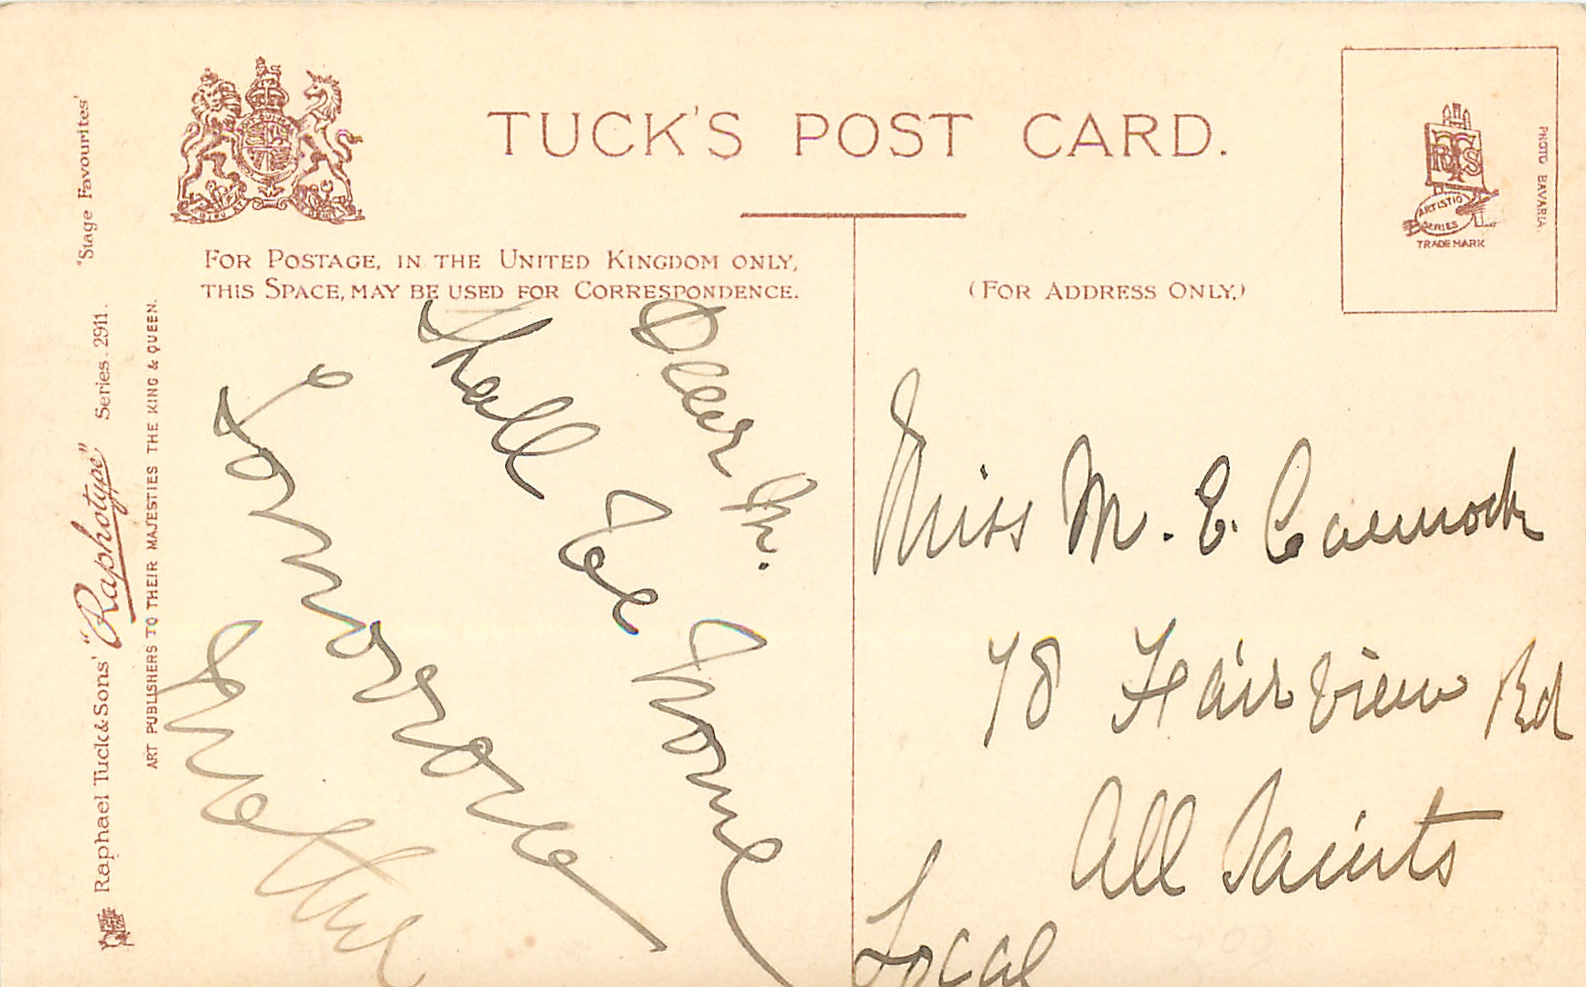 TUCK'S POST CARD.
FOR POSTAGE, IN THE UNITED KINGDOM ONLY,
THIS SPACE, MAY BE USED FOR CORRESPONDENCE.
(FOR ADDRESS ONLY.)
RTS
ARTISTIC
SERIES
TRADE MARK
PHOTO BAVARIA.
Raphael Tuck & Sons' "Raphotype" Series. 2911. "Stage Favourites'
ART PUBLISHERS TO THEIR MAJESTIES THE KING & QUEEN.
Dear M.
Shall be home
tomorrow
Miss M. E.
78 Fairview Rd
All Saints
Local